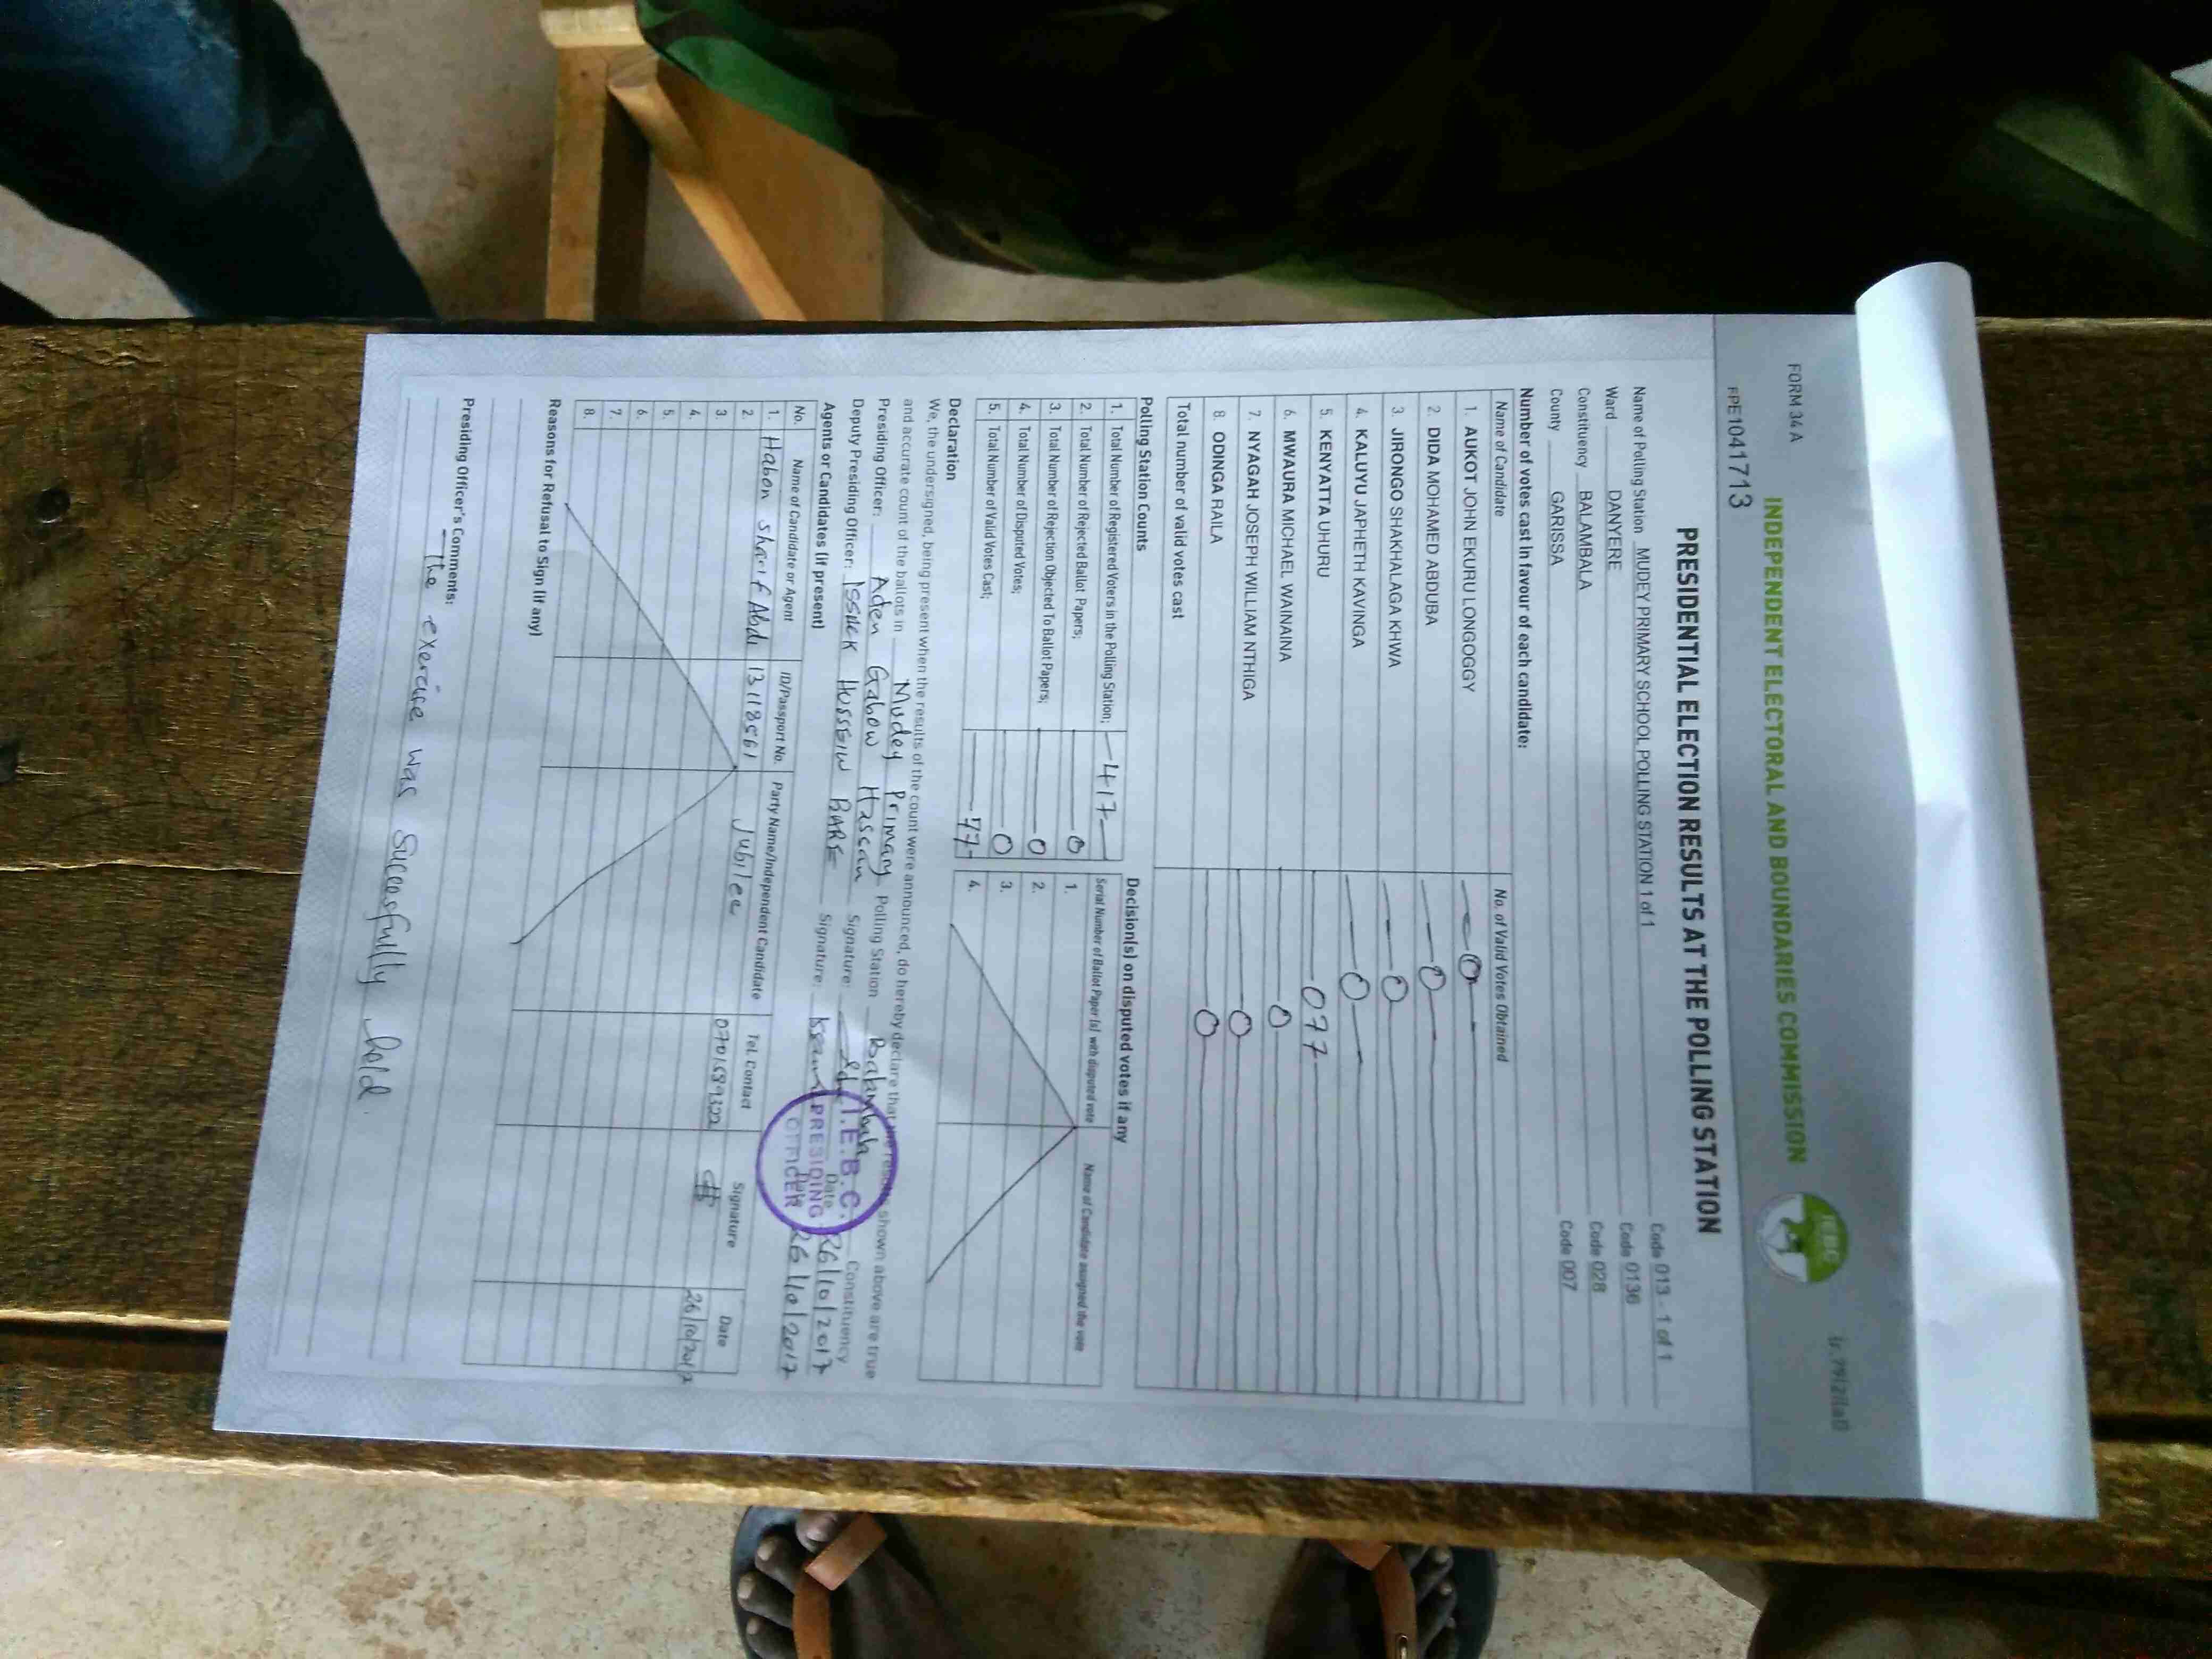 FORM 34 A
INDEPENDENT ELECTORAL AND BOUNDARIES COMMISSION
IEBC
PE1041713
PRESIDENTIAL ELECTION RESULTS AT THE POLLING STATION
Name of Polling Station MUDEY PRIMARY SCHOOL POLLING STATION 1 of 1 Code 013 - 1 of 1
Ward DANYERE Code 0136
Constituency BALAMBALA Code 028
County GARISSA Code 007
Number of votes cast in favour of each candidate:
Name of Candidate No. of Valid Votes Obtained
1. AUKOT JOHN EKURU LONGOGGY 0
2. DIDA MOHAMED ABDUBA 0
3. JIRONGO SHAKHALAGA KHWA 0
4. KALUYU JAPHETH KAVINGA 0
5. KENYATTA UHURU 077
6. MWAURA MICHAEL WAINAINA 0
7. NYAGAH JOSEPH WILLIAM NTHIGA 0
8. ODINGA RAILA 0
Total number of valid votes cast
Polling Station Counts
1. Total Number of Registered Voters in the Polling Station; 417
2. Total Number of Rejected Ballot Papers; 0
3. Total Number of Rejection Objected To Ballot Papers; 0
4. Total Number of Disputed Votes; 0
5. Total Number of Valid Votes Cast; 77
Decision(s) on disputed votes if any
Serial Number of Ballot Paper (s) with disputed vote Name of Candidate assigned the vote
1.
2.
3.
4.
Declaration
We, the undersigned, being present when the results of the count were announced, do hereby declare that the results shown above are true
and accurate count of the ballots in Mudey Primary Polling Station Balambala Constituency
Presiding Officer: Aden Gabow Hassan Signature: Date 26/10/2017
Deputy Presiding Officer: ISSACK HUSSEIN BARE Signature: Date 26/10/2017
I.E.B.C.
PRESIDING
OFFICER
Agents or Candidates (if present)
No. Name of Candidate or Agent ID/Passport No. Party Name/Independent Candidate Tel. Contact Signature Date
1. Habon Sharif Abdi 13118561 Jubilee 0701589322 26/10/2017
2.
3.
4.
5.
6.
7.
8.
Reasons for Refusal to Sign (if any)
Presiding Officer's Comments:
The exercise was successfully held.